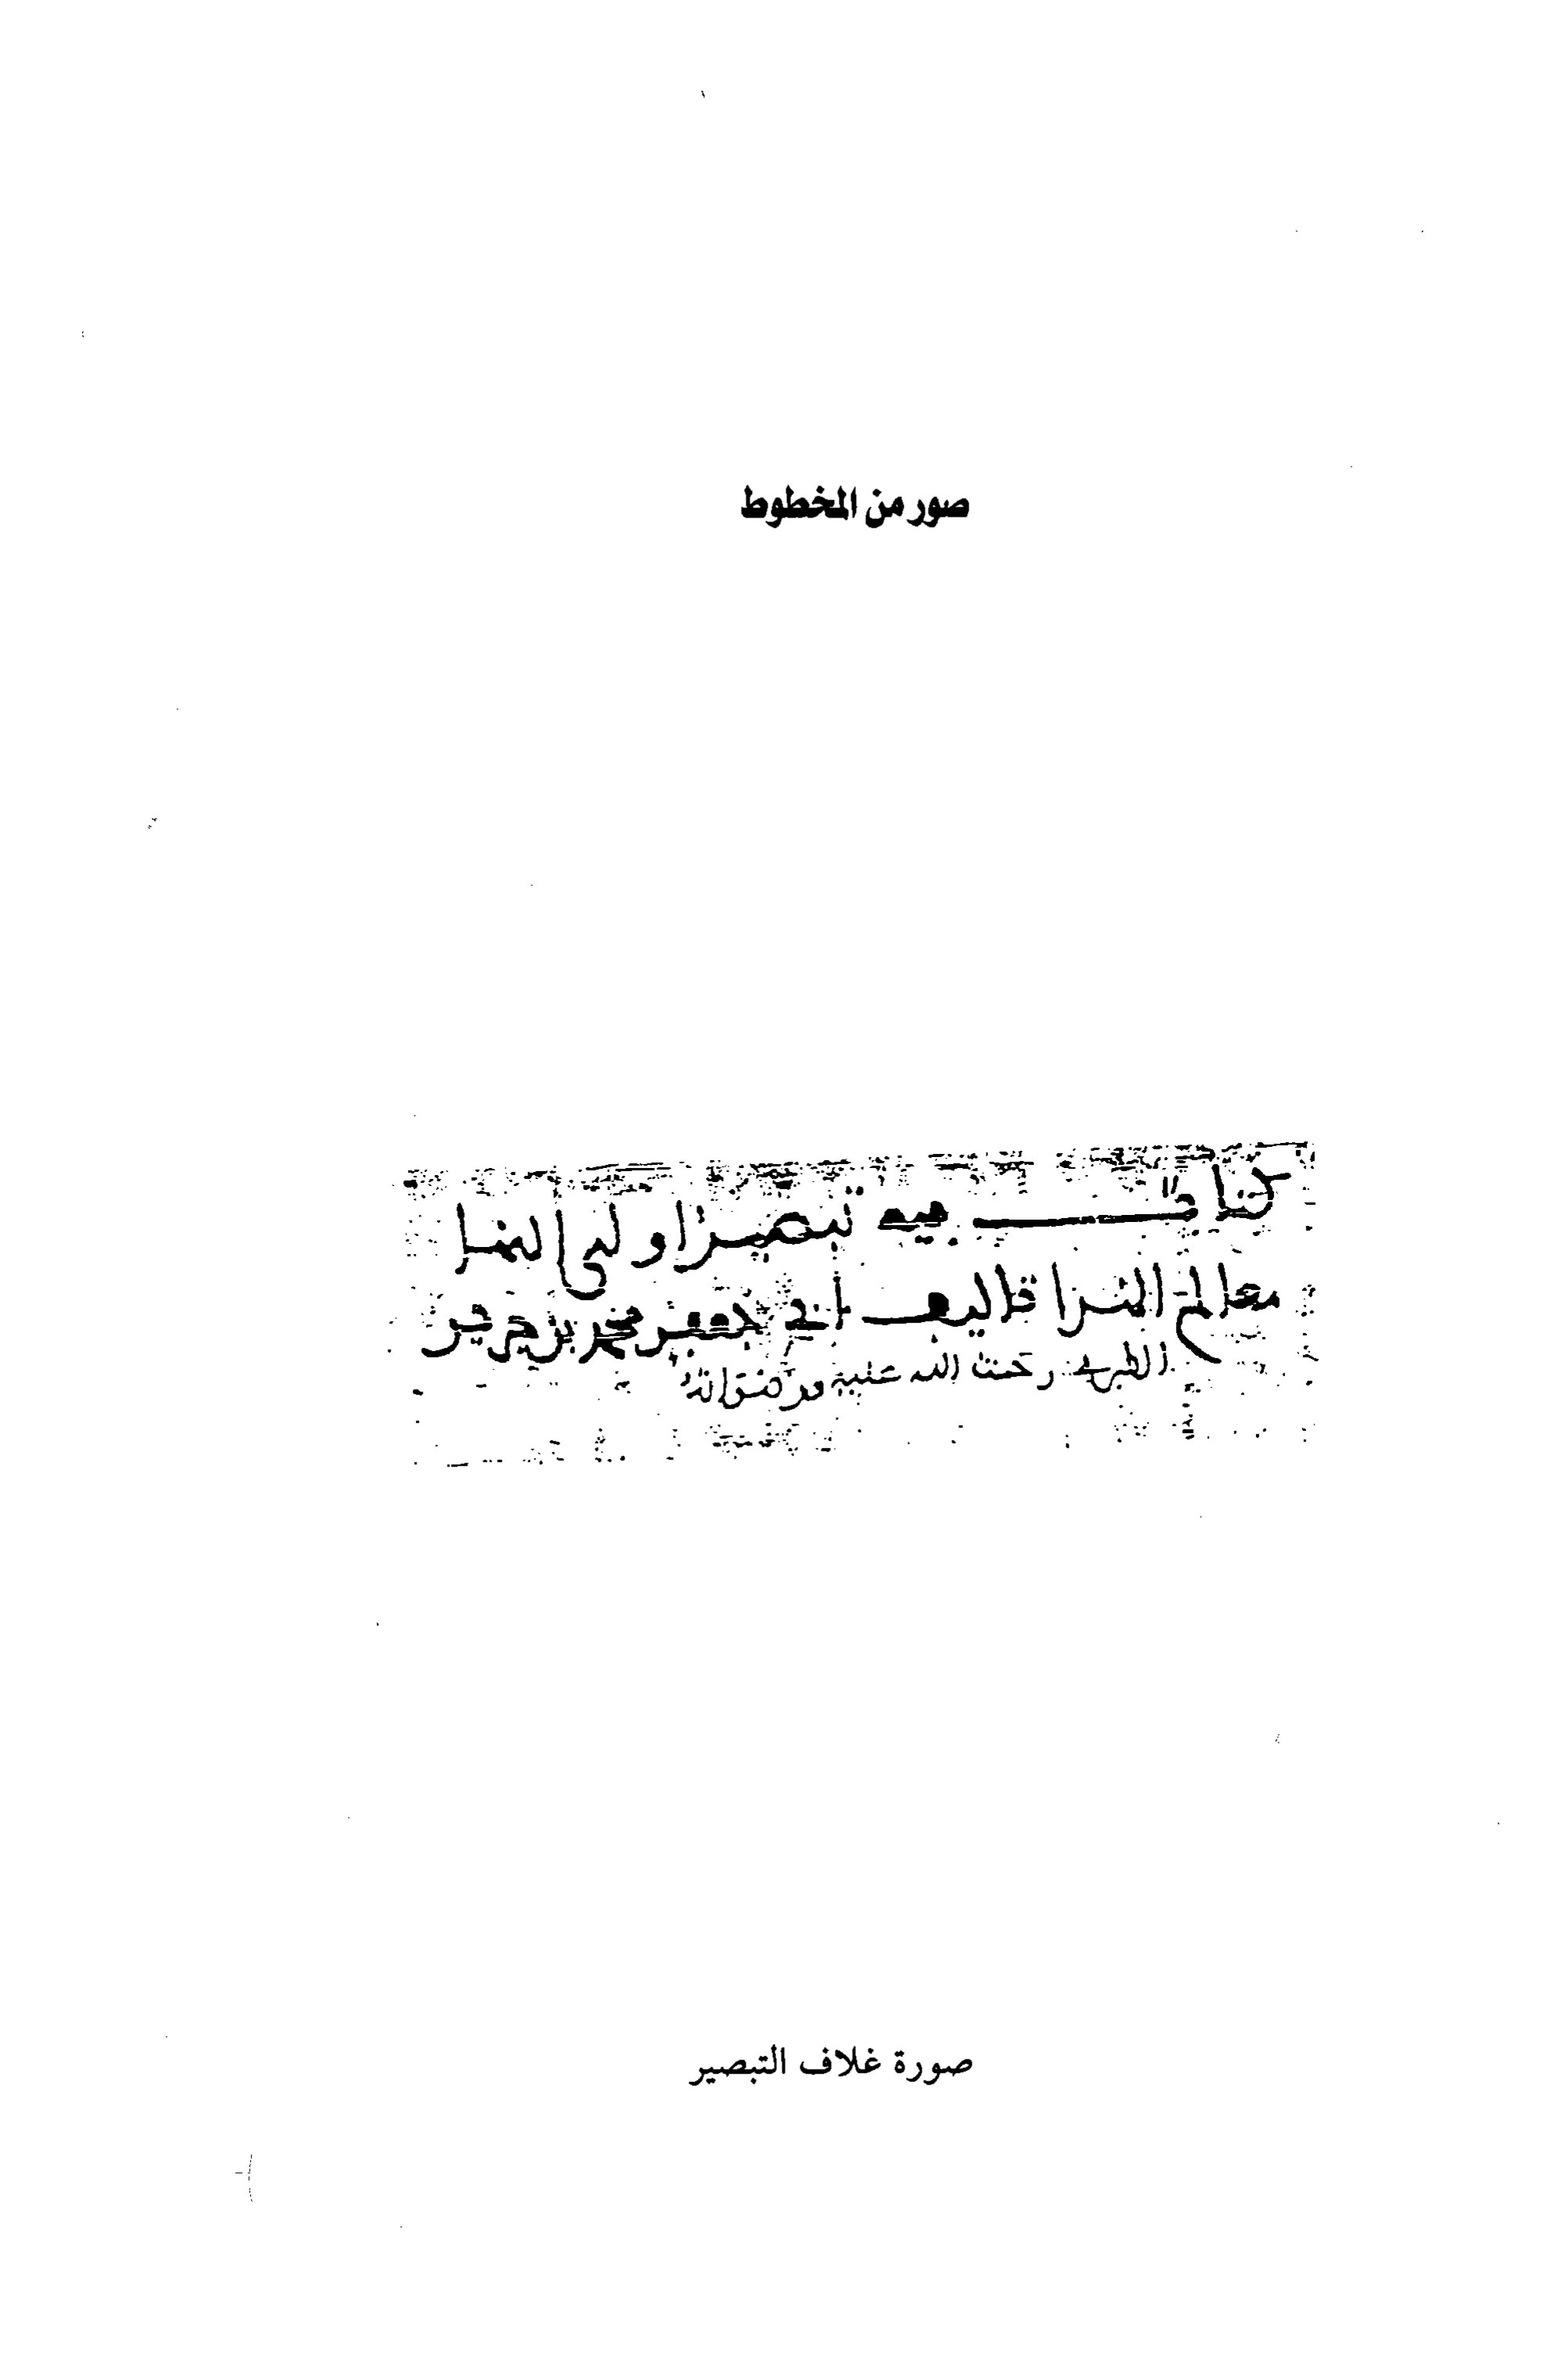 صور من المخطوط
كتاب فيه تبصير اولى النها
معالم الهدا تاليف ابي جعفر محمد بن جرير
الطبري رحمت الله عليه ورضوانه
صورة غلاف التبصير